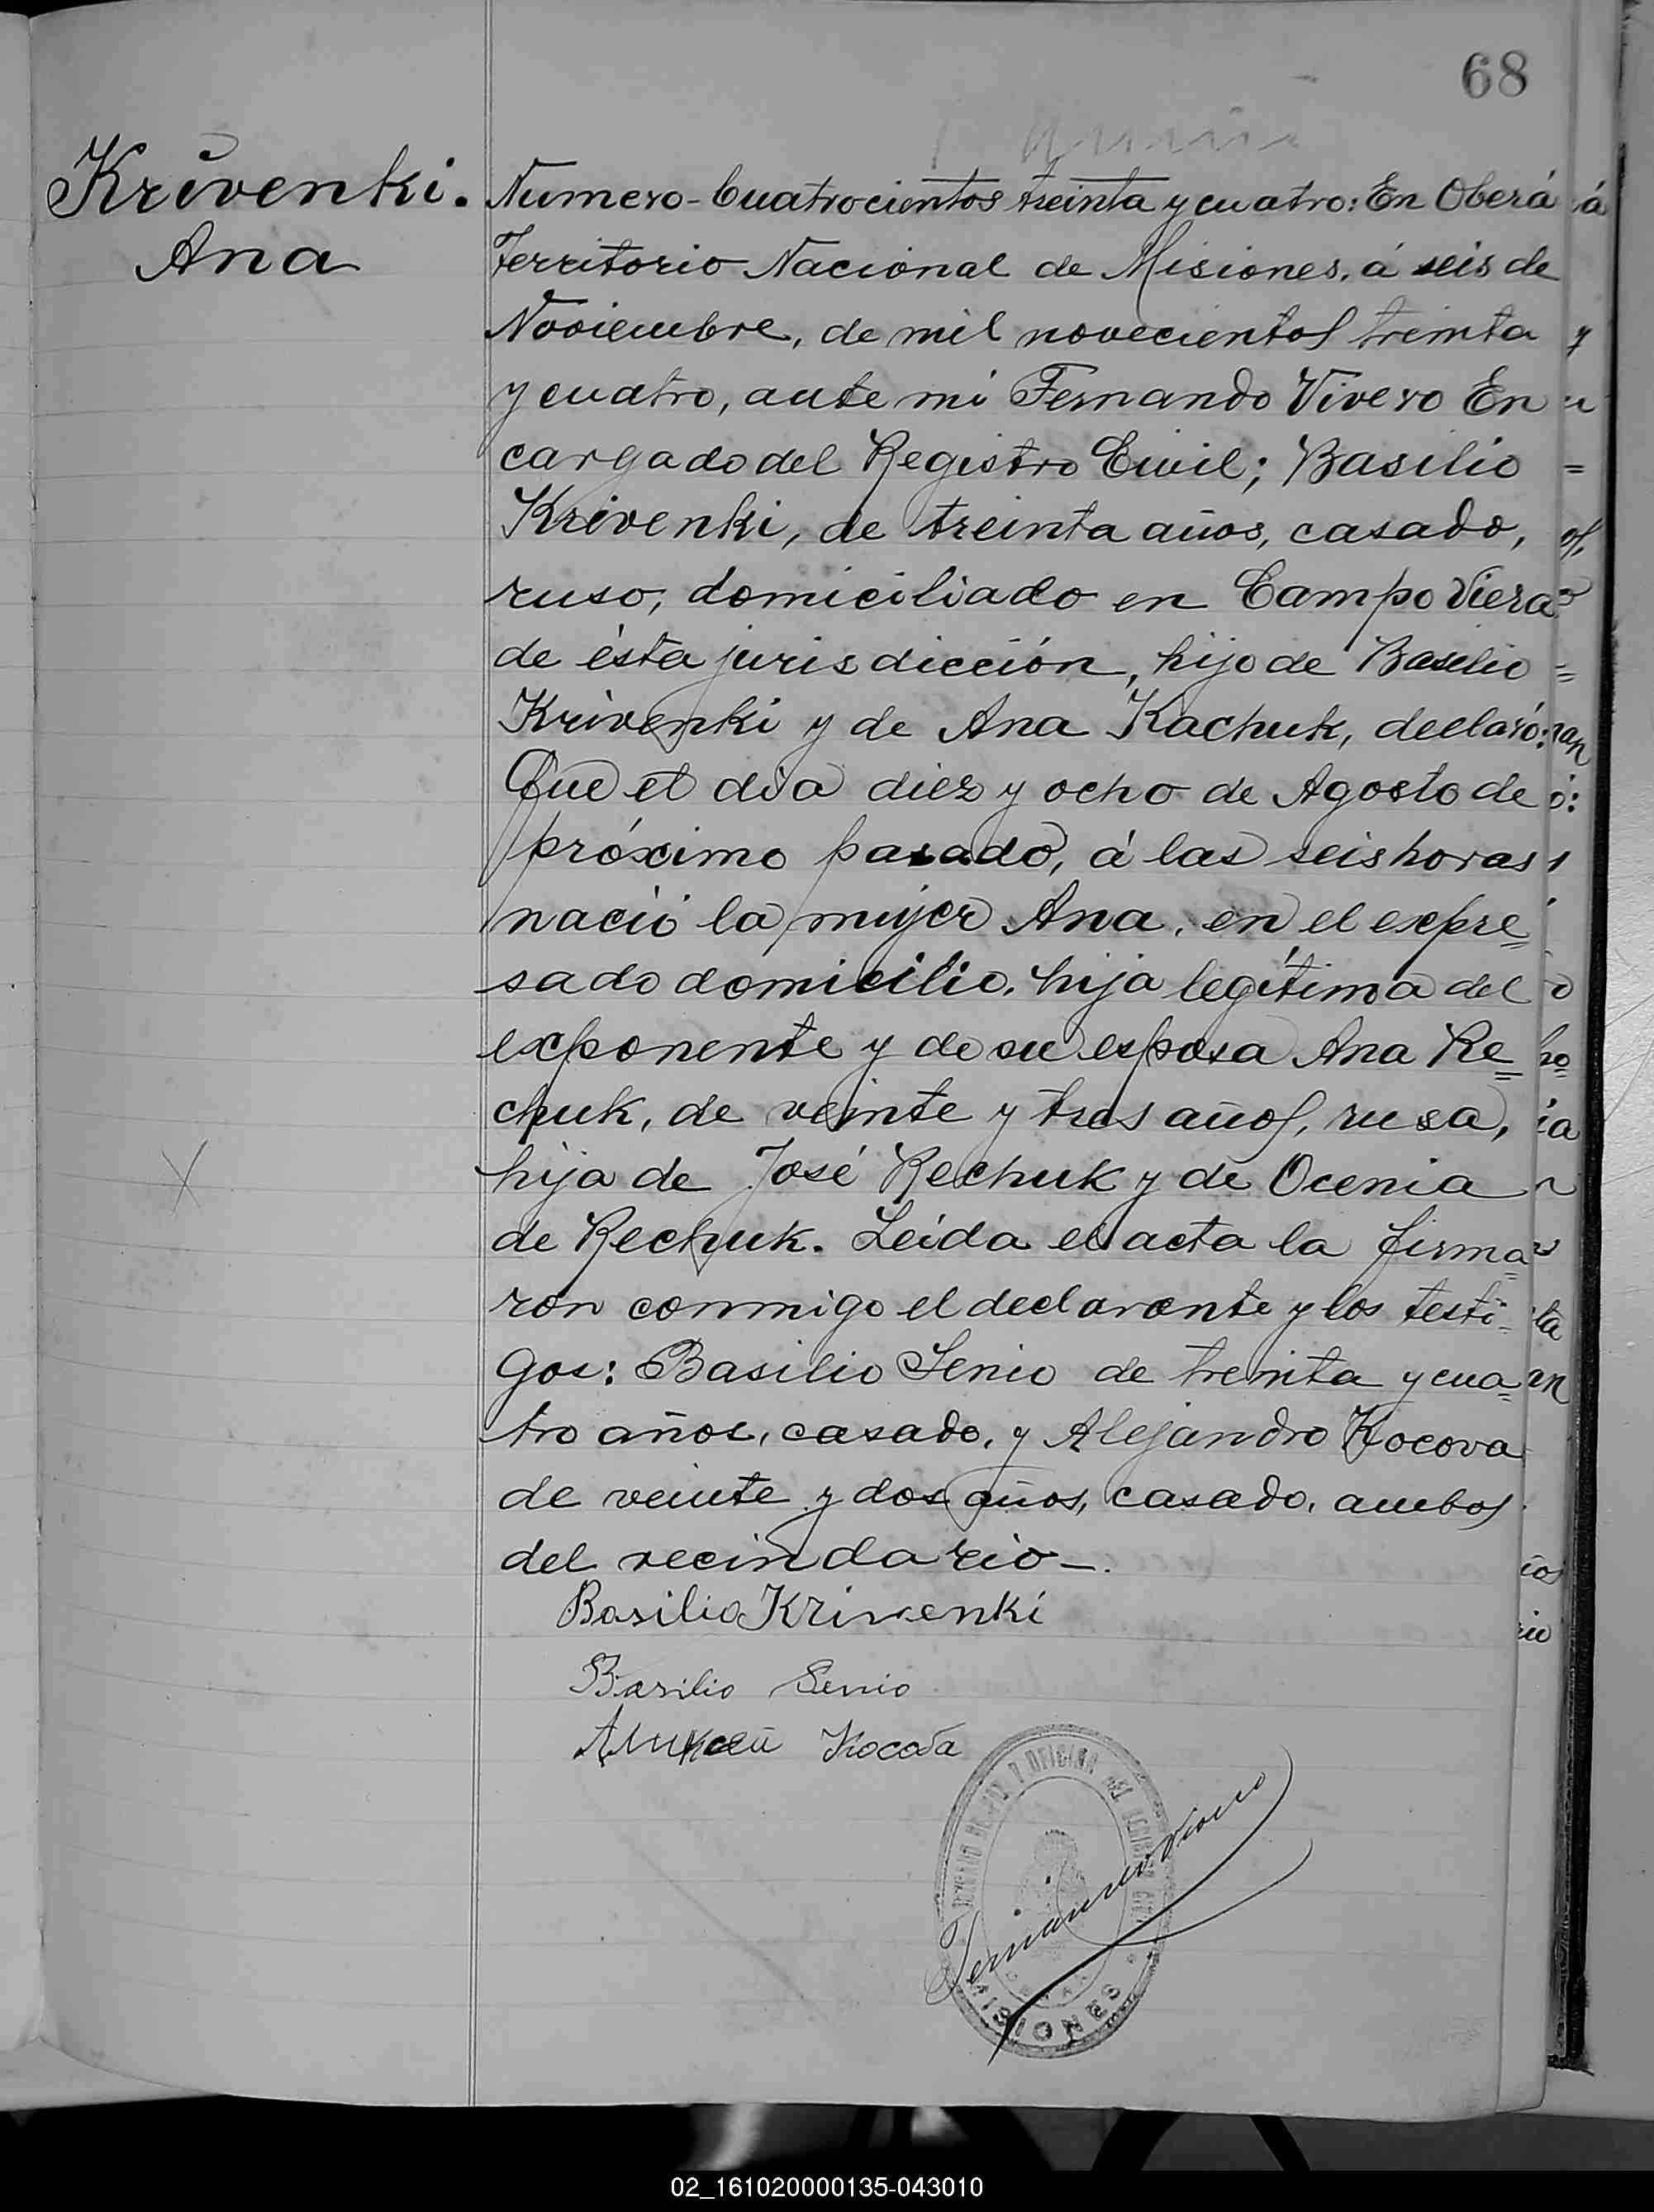 68
Krivenki.
Ana
Numero-Cuatrocientos treinta y cuatro: En Oberá
Territorio Nacional de Misiones, á seis de
Noviembre, de mil novecientos treinta
y cuatro, ante mi Fernando Vivero En
cargado del Registro Civil; Basilio
Krivenki, de treinta años, casado,
ruso, domiciliado en Campo Viera
de ésta jurisdicción, hijo de Basilio
Krivenki y de Ana Kachuk, declaró:
Que el dia diez y ocho de Agosto de
próximo pasado, á las seis horas
nació la mujer Ana, en el expre=
sado domicilio, hija legítima del
exponente y de su esposa Ana Re=
chuk, de veinte y tres años, rusa,
hija de José Rechuk y de Ocenia
de Rechuk. Leida el acta la firma=
ron conmigo el declarante y los testi=
gos: Basilio Senio de treinta y cua=
tro años, casado, y Alejandro Kocova
de veinte y dos años, casado, ambos
del vecindario-.
Basilio Krivenki
Basilio Senio
Kocova
Fernando Vivero
MISIONES
02_161020000135-043010